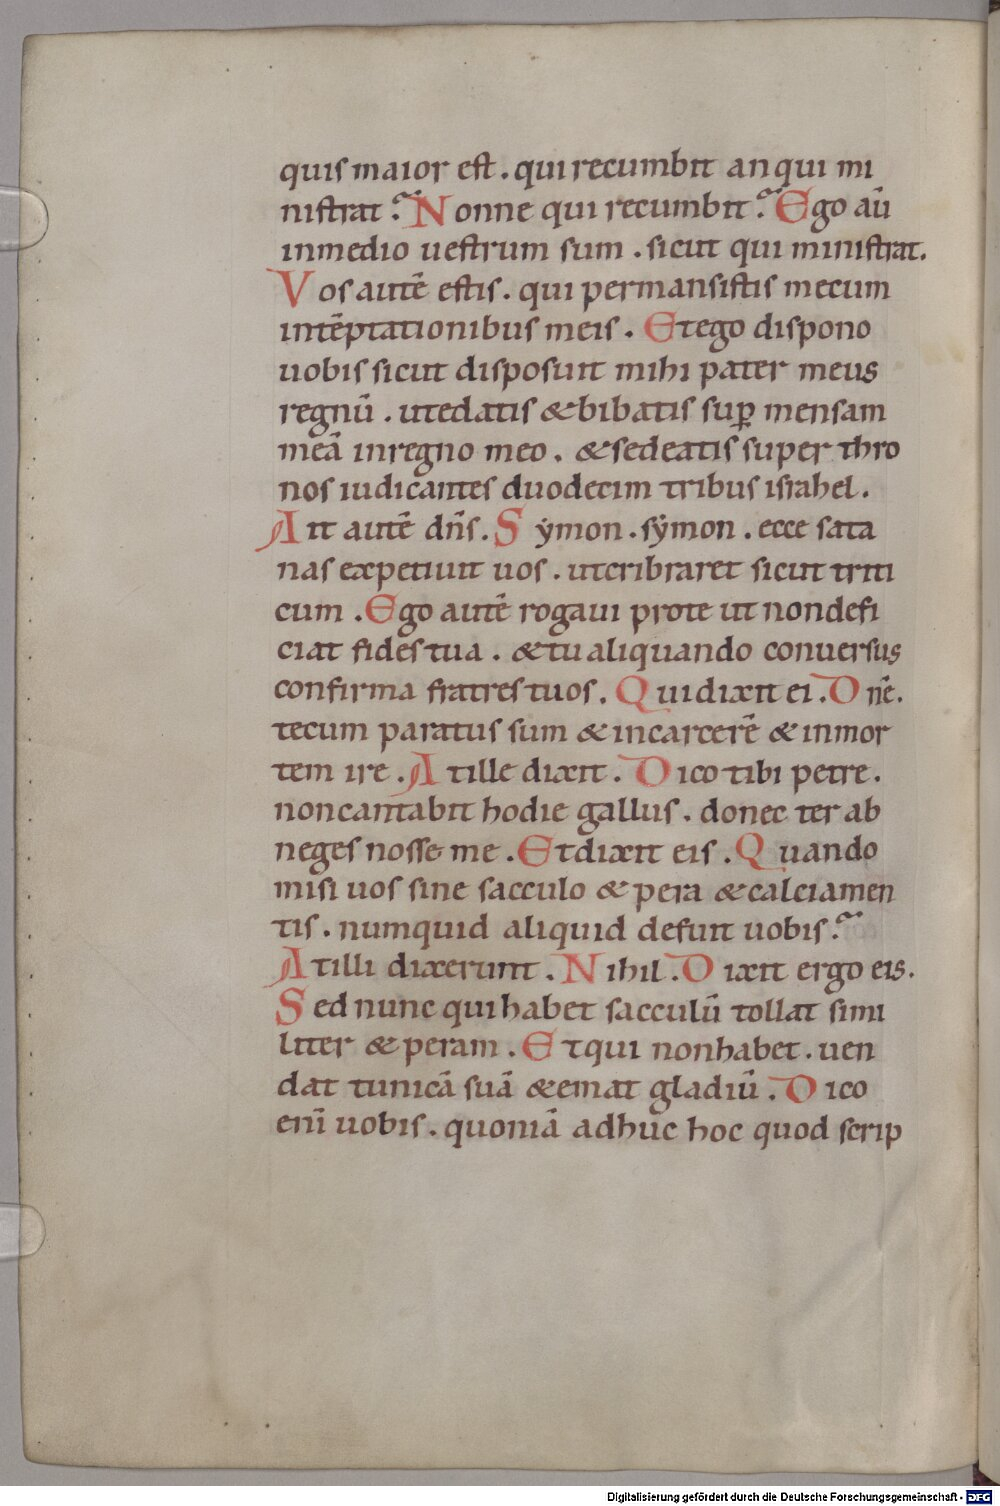 quis maior est . qui recumbit an qui mi
nistrat ? Nonne qui recumbit ? Ego aū
inmedio uestrum sum . sicut qui ministrat .
Vos autē estis . qui permansistis mecum
intēptationibus meis . Et ego dispono
uobis sicut disposuit mihi pater meus
regnū . ut edatis & bibatis suꝑ mensam
meā inregno meo . & sedeatis super thro
nos iudicantes duodecim tribus israhel .
Ait autē dn̄s . Sẏmon . sẏmon . ecce sata
nas expetiuit uos . ut cribraret sicut triti
cum . Ego autē rogaui pro te ut non defi
ciat fides tua . & tu aliquando conuersus
confirma fratres tuos . Qui dixit ei . Dn̄e .
tecum paratus sum & in carcerē & in mor
tem ire . At ille dixit . Dico tibi petre .
non cantabit hodie gallus . donec ter ab
neges nosse me . Et dixit eis . Quando
misi uos sine sacculo & pera & calciamen
tis . numquid aliquid defuit uobis ?
At illi dixerunt . Nihil . Dixit ergo eis .
Sed nunc qui habet sacculū tollat simi
liter & peram . Et qui non habet . uen
dat tunicā suā & emat gladiū . Dico
enī uobis . quoniā adhuc hoc quod scrip
Digitalisierung gefördert durch die Deutsche Forschungsgemeinschaft - DFG